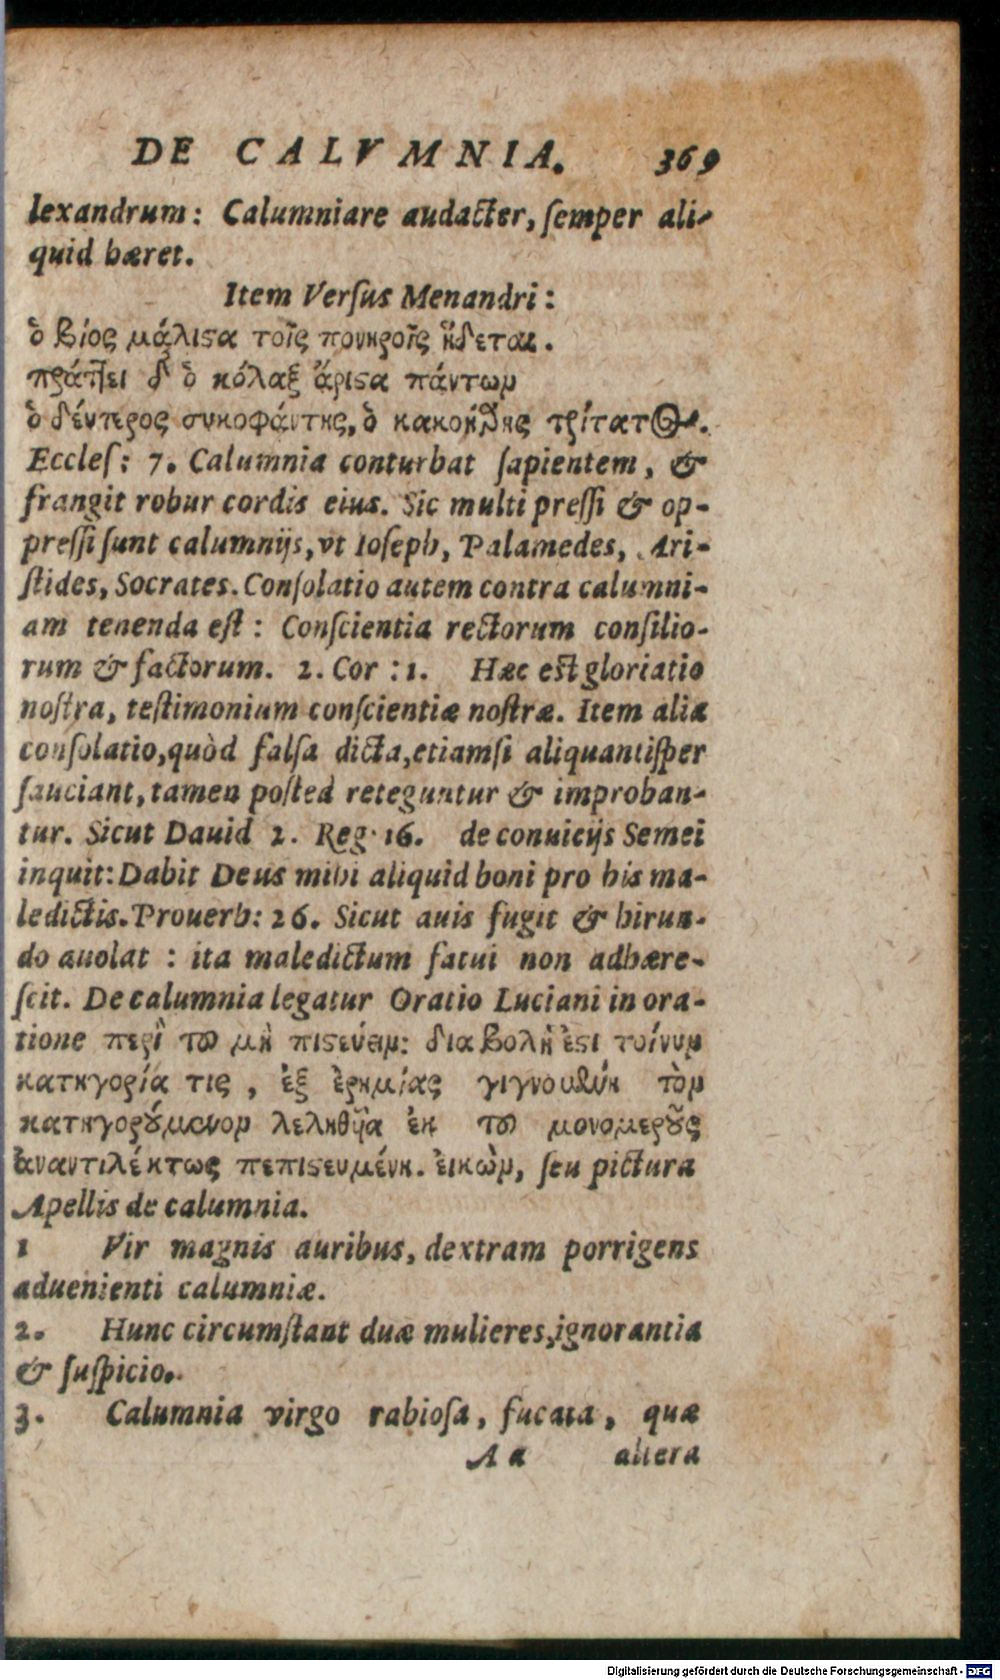 DE CALVMNIA. 369
lexandrum: Calumniare audacter, ſemper ali-
quid hæret.
Item Verſus Menandri:
ὁ βίος μάλιςα τοῖς πονηροῖς ἥδεται.
πράττει δ ὁ κόλαξ ἄριςα πάντων
ὁ δέυτερος συκοφάντης, ὁ κακοήθης τρίτατος.
Eccleſ: 7. Calumnia conturbat ſapientem, &
frangit robur cordis eius. Sic multi preſſi & op-
preſſi ſunt calumnijs, vt Ioſeph, Palamedes, Ari-
ſtides, Socrates. Conſolatio autem contra calumni-
am tenenda eſt: Conſcientia rectorum conſilio-
rum & factorum. 2. Cor: 1. Hæc eſt gloriatio
noſtra, teſtimonium conſcientiæ noſtræ. Item alia
conſolatio, quòd falſa dicta, etiamſi aliquantiſper
ſauciant, tamen poſteà reteguntur & improban-
tur. Sicut Dauid 2. Reg. 16. de conuicijs Semei
inquit: Dabit Deus mihi aliquid boni pro his ma-
ledictis. Prouerb: 26. Sicut auis fugit & hirun-
do auolat: ita maledictum fatui non adhære-
ſcit. De calumnia legatur Oratio Luciani in ora-
tione περὶ τοῦ μὴ πιςεύειν: διαβολὴ ἐςι τοίνυν
κατηγορία τις, ἐξ ἐρημίας γιγνομένη τὸν
κατηγορούμενον λεληθῆα ἐκ τοῦ μονομεροῦς
ἀναντιλέκτως πεπιςευμένη. ἐικὼν, ſeu pictura
Apellis de calumnia.
1 Vir magnis auribus, dextram porrigens
aduenienti calumniæ.
2. Hunc circumſtant duæ mulieres, ignorantia
& ſuſpicio.
3. Calumnia virgo rabioſa, fucata, quæ
Aa altera
Digitalisierung gefördert durch die Deutsche Forschungsgemeinschaft - DFG